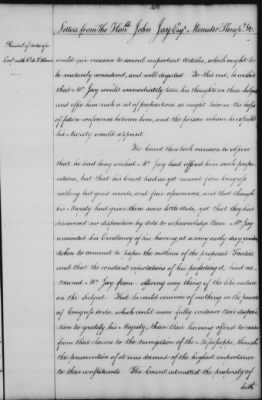 Letters from the Honble John Jay Esqr Minister Plenipo &c
would give occasion to several important Articles, which ought to
be maturely considered, and well digested. To this end, he wished
that Mr Jay would immediately turn his thoughts on these subjects
and offer him such a set of propositions as might become the basis
of future conferences between him, and the person whom he expected
his Majesty would appoint.
The Count then took occasion to observe
that he had long wished Mr Jay had offered him such propo-
sitions, but that his Court had as yet received from Congress
nothing but good words, and fair assurances, and that though
his Majesty had given them some little aids, yet they had
discovered no disposition by acts to acknowledge them. Mr Jay
reminded his Excellency of his having at a very early day under-
taken to commit to paper the outlines of the proposed Treaties,
and that the constant expectations of his perfecting it, had re-
strained Mr Jay from offering any thing of the like nature
on the subject. That he could conceive of nothing in the power
of Congress to do, which could more fully evidence their disposi-
tion to gratify his Majesty, than their having offered to recede
from their claims to the navigation of the Mississippi, though
the preservation of it was deemed of the highest importance
to their constituents. The Count admitted the propriety of
both